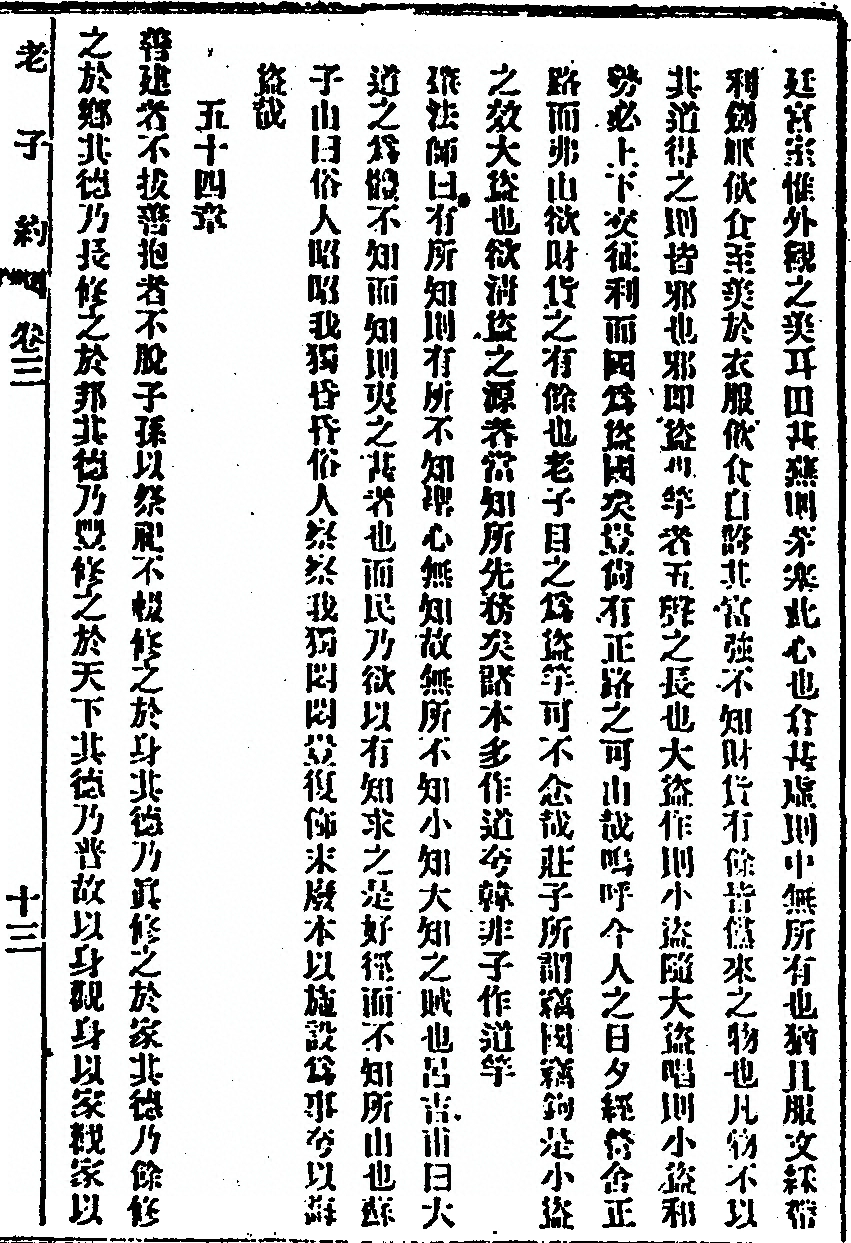 廷宮室惟外觀之美耳田甚蕪則茅塞此心也倉甚虛則中無所有也猶且服文綵帶
利劍厭飲食至美於衣服飲食自誇其富強不知財貨有餘皆儻來之物也凡物不以
其道得之則皆邪也邪即盜也竽者五聲之長也大盜作則小盜隨大盜唱則小盜和
勢必上下交征利而國爲盜國矣豈尚有正路之可由哉嗚呼今人之日夕經營舍正
路而弗由欲財貨之有餘也老子目之爲盜竽可不念哉莊子所謂竊國竊鉤是小盜
之效大盜也欲清盜之源者當知所先務矣諸本多作道夸韓非子作道竽
法師曰有所知則有所不知聖心無知故無所不知小知大知之賊也呂吉甫曰大
道之爲體不知而知則夷之甚者也而民乃欲以有知求之是好徑而不知所由也蘇
子由曰俗人昭昭我獨昏昏俗人察察我獨悶悶豈復飾末廢本以施設爲事夸以誨
盜哉
五十四章
善建者不拔善抱者不脫子孫以祭祀不輟修之於身其德乃眞修之於家其德乃餘修
之於鄉其德乃長修之於邦其德乃豐修之於天下其德乃普故以身觀身以家觀家以
老子約 卷三
十三